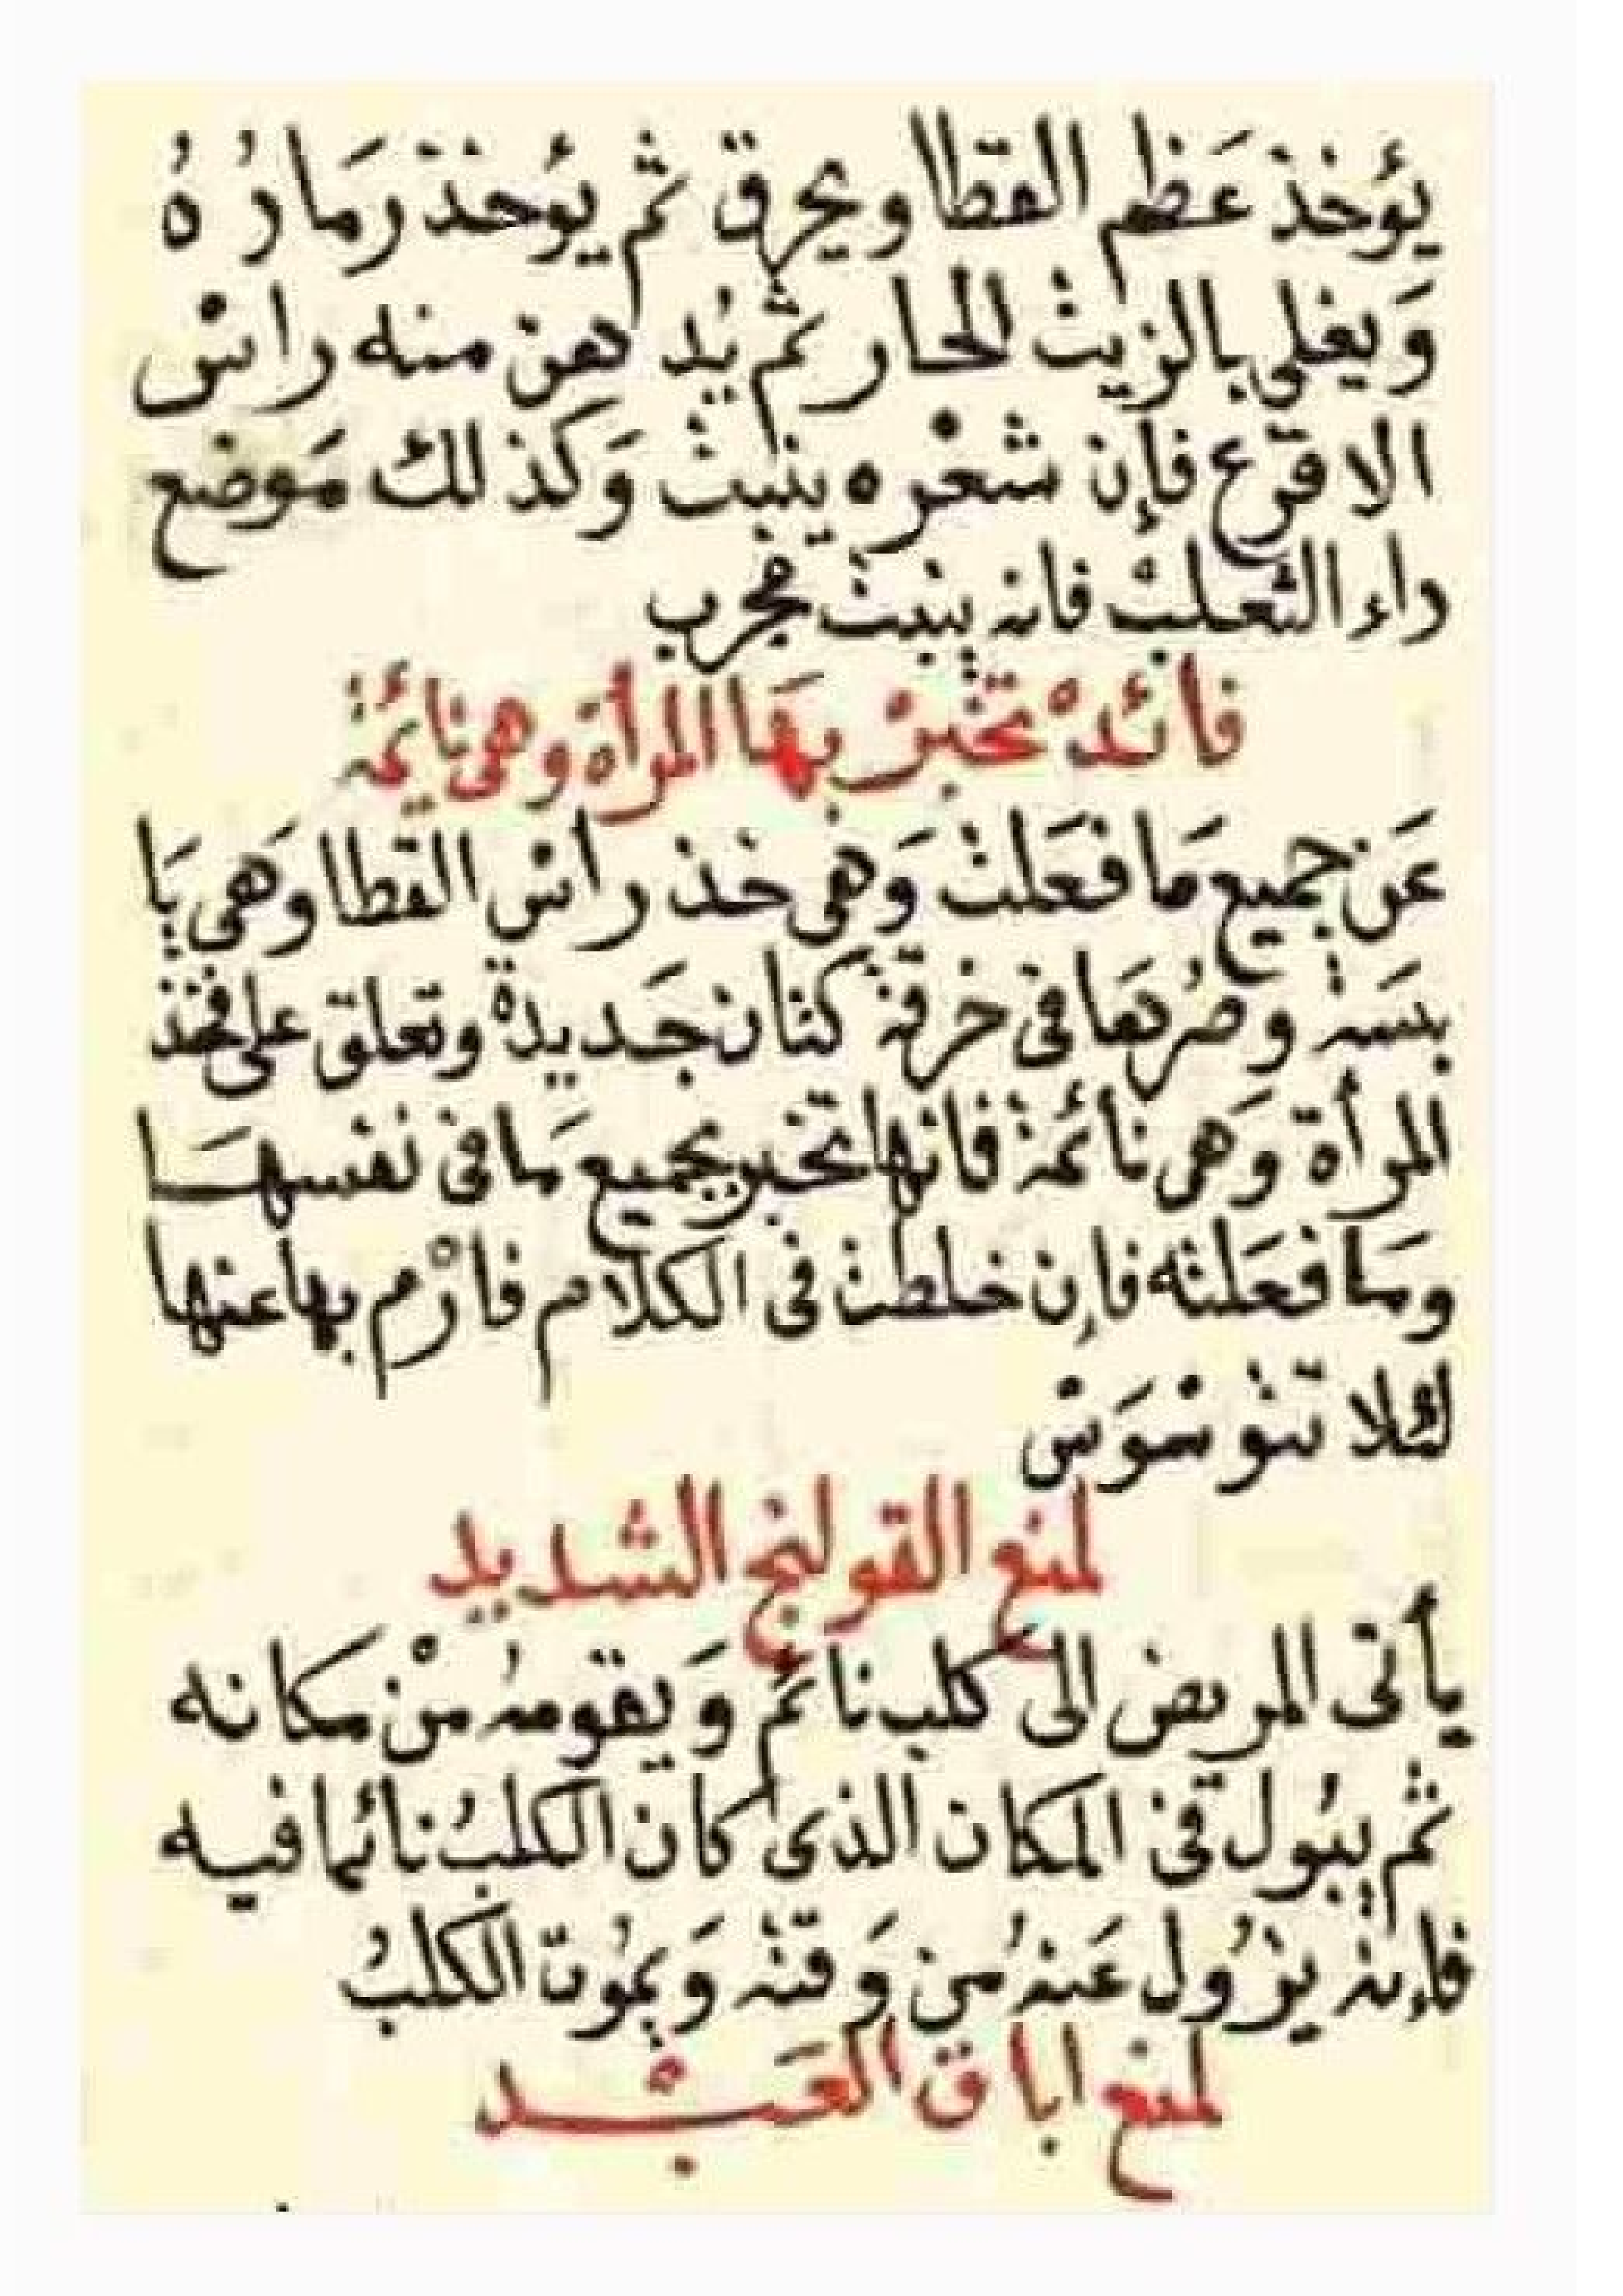 يؤخذ عَظم القطا ويحرق ثم يؤخذ رَمادُهُ
وَيغلى بالزيت الحار ثم يُدهن منه رأسْ
الاقرع فإن شعْره ينبت وَكذلك مَوضع
داء الثعلب فانه ينبت مجرب
فائدهْ تخبرْ بهَا المرأة وهى نائمة
عَن جميع مَا فعَلت وَهى خذ رأسْ القطا وهى يَا
بسَة وصُرها فى خرقة كتان جَديدة وتعلق على فخذ
المرأة وَهى نائمة فانها تخبر بجميع مَا فى نفسهَا
ومَا فعَلته فإن خلطت فى الكلام فارْم بها عنها
لئلا تتوسْوَسْ
لمنع القولنج الشديد
يأتى المريض الى كلب نائم وَيقومهُ منْ مكانه
ثم يبُول فى المكان الذى كان الكلبُ نائما فيه
فإنه يزُول عَنهُ من وَقته وَيمُوت الكلبُ
لمنع اباق العَبْد